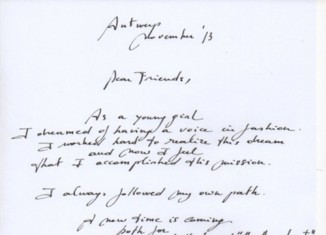 Antwerp
November '13
Dear Friends,
As a young girl
I dreamed of having a voice in fashion.
I worked hard to realize this dream
and now I feel
that I accomplished this mission.
I always followed my own path.
A new time is coming
both for